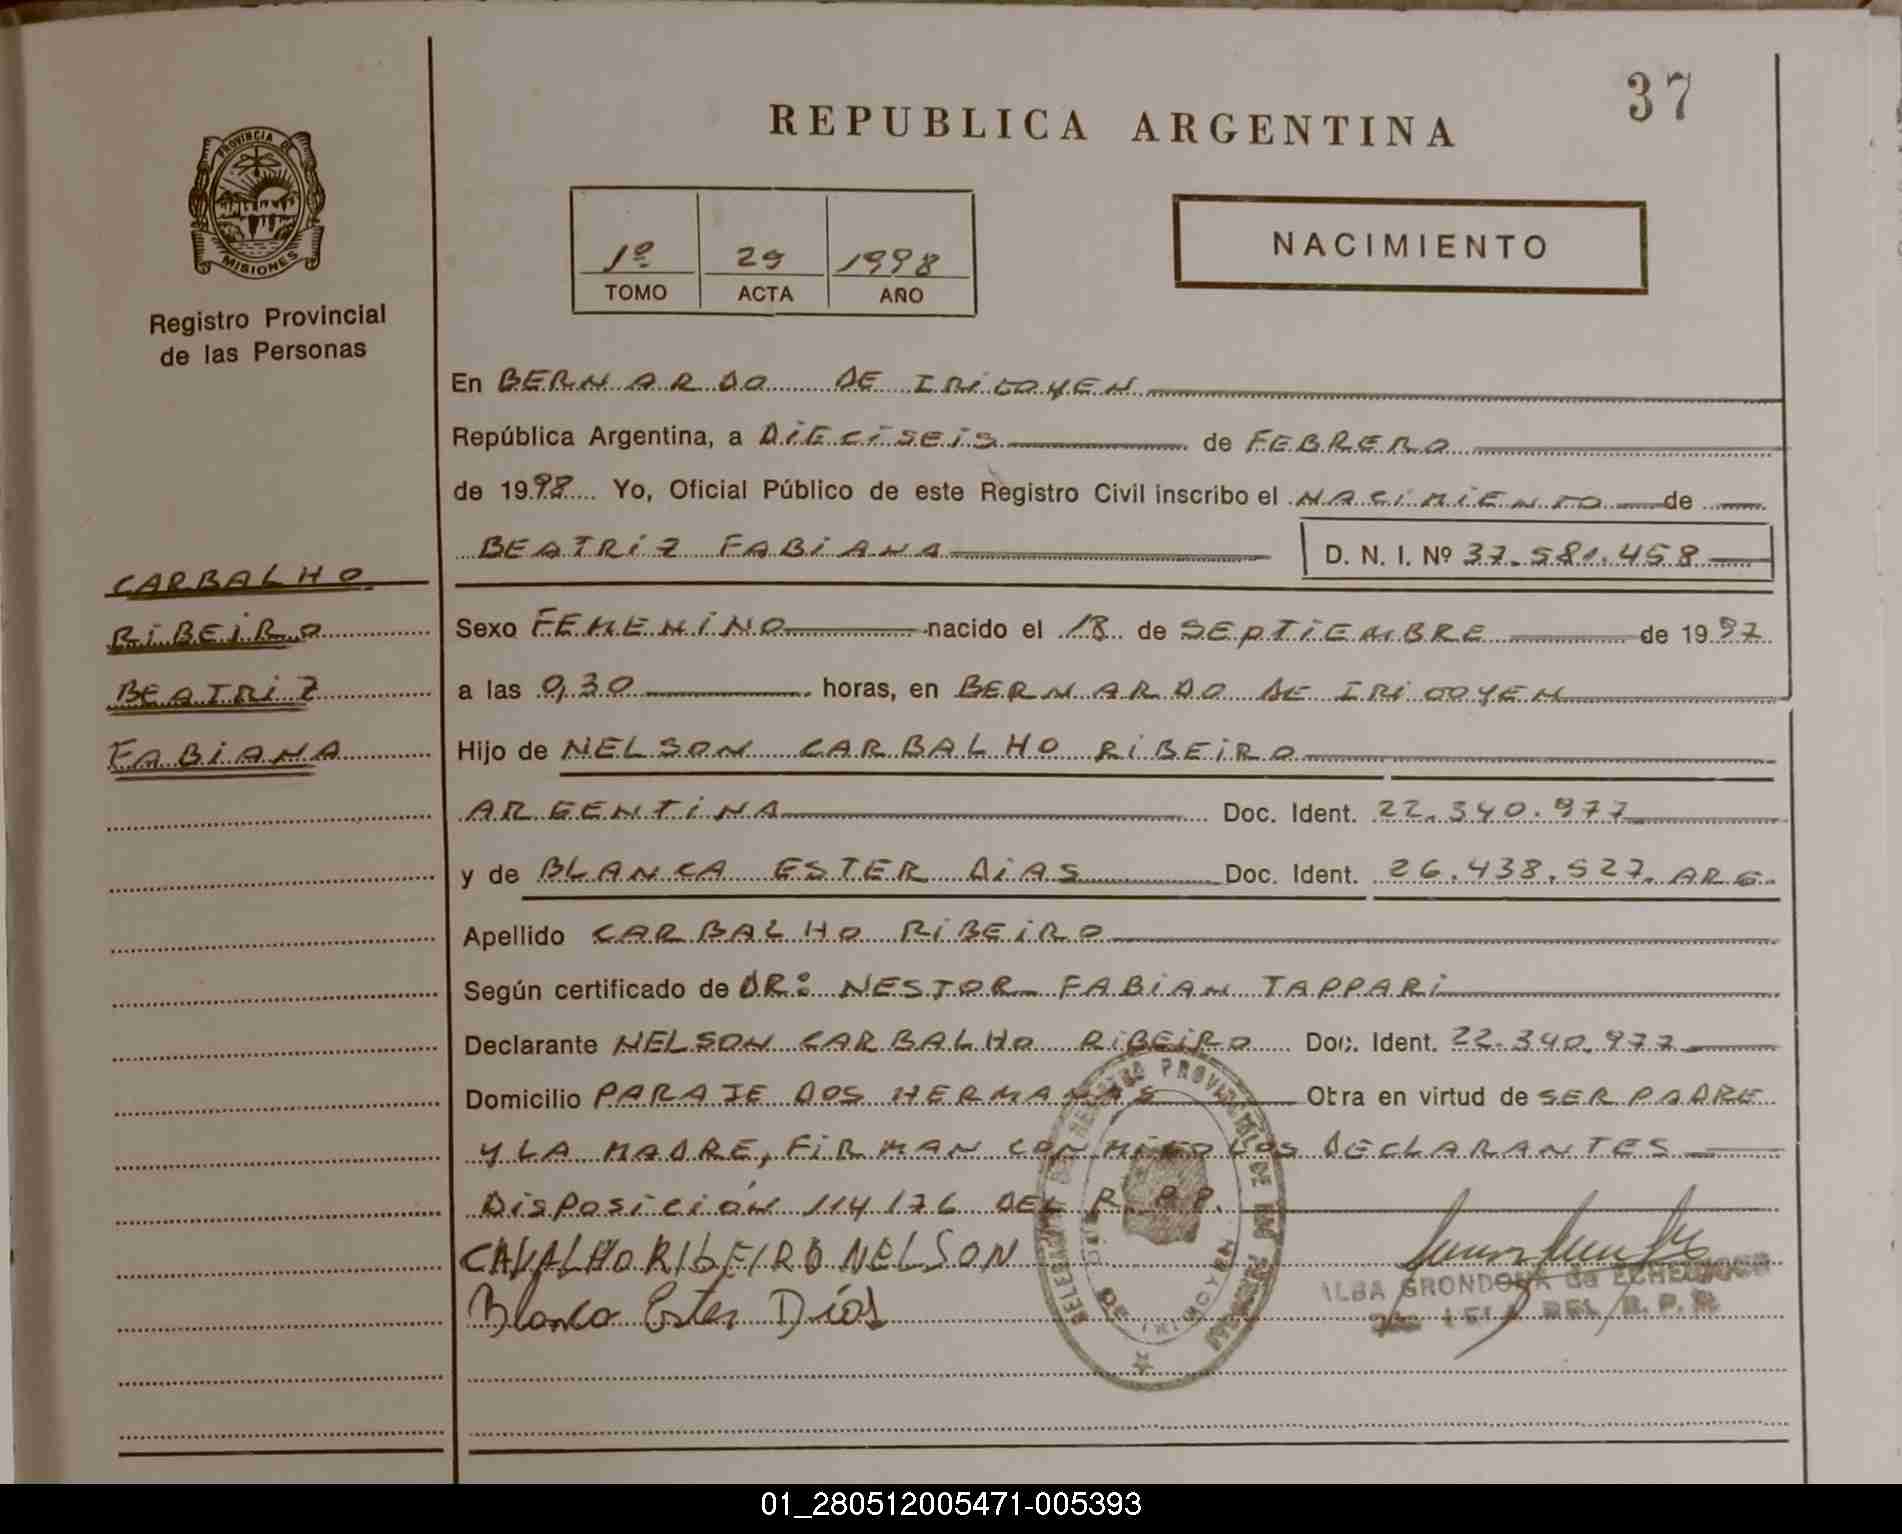 37
REPUBLICA ARGENTINA
PROVINCIA DE
MISIONES
Registro Provincial
de las Personas
1º 29 1998
TOMO ACTA AÑO
NACIMIENTO
En BERNARDO DE IRIGOYEN
República Argentina, a DIECISEIS de FEBRERO
de 1998 Yo, Oficial Público de este Registro Civil inscribo el NACIMIENTO de
BEATRIZ FABIANA D. N. I. Nº 37.581.458
CARBALHO
RIBEIRO
BEATRIZ
FABIANA
Sexo FEMENINO nacido el 18 de SEPTIEMBRE de 1997
a las 0,30 horas, en BERNARDO DE IRIGOYEN
Hijo de NELSON CARBALHO RIBEIRO
ARGENTINA Doc. Ident. 22.340.977
y de BLANCA ESTER DIAS Doc. Ident. 26.438.527. ARG.
Apellido CARBALHO RIBEIRO
Según certificado de DR: NESTOR FABIAN TAPPARI
Declarante NELSON CARBALHO RIBEIRO Doc. Ident. 22.340.977
Domicilio PARAJE DOS HERMANAS Obra en virtud de SER PADRE
Y LA MADRE, FIRMAN CONMIGO LOS DECLARANTES
DISPOSICIÓN 114/76 DEL R.P.P.
CAVALHO RIBEIRO NELSON
Blanca Ester Días
ALBA GRONDONA de
DEL R. P. P.
01_280512005471-005393